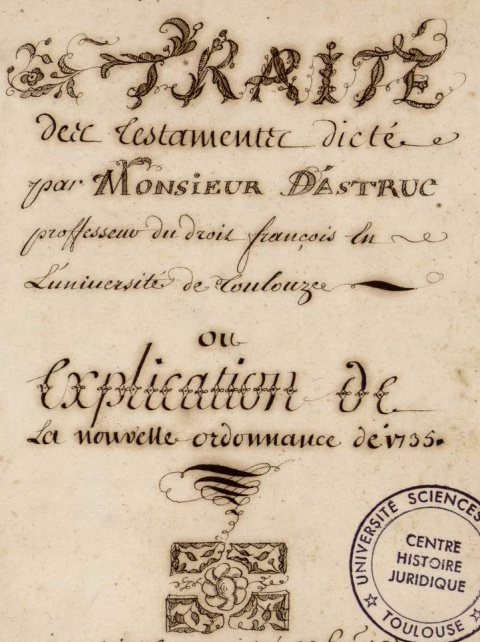 TRAITÉ
des testaments dicté
par MONSIEUR D'ASTRUC
proffesseur du droit françois en
L'université de Toulouze
ou
Explication de
La nouvelle ordonnance de 1735.
UNIVERSITÉ SCIENCES
CENTRE
HISTOIRE
JURIDIQUE
TOULOUSE